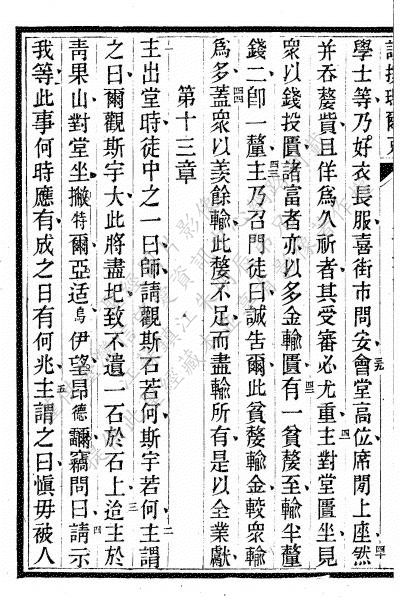 學士等乃好衣長服喜街市問安會堂高位席閒上座然
并吞嫠貲且佯為久祈者其受審必尤重主對堂匱坐見
衆以錢投匱諸富者亦以多金輸匱有一貧嫠至輸半釐
錢二卽一釐主乃召門徒曰誠告爾此貧嫠輸金較衆輸
為多蓋衆以羨餘輸此嫠不足而盡輸所有是以全業獻
第十三章
主出堂時徒中之一曰師請觀斯石若何斯宇若何主謂
之曰爾觀斯宇大此將盡圮致不遺一石於石上迨主於
靑果山對堂坐撇特爾亞适烏伊望昂德竊問曰請示
我等此事何時應有成之日有何兆主謂之曰愼毋被人